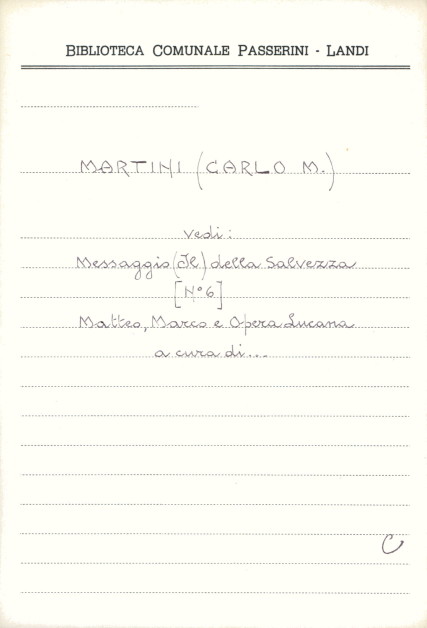 BIBLIOTECA COMUNALE PASSERINI - LANDI
MARTINI (CARLO M.)
vedi:
Messaggio (Il) della Salvezza
[N°6]
Matteo, Marco e Opera Lucana
a cura di...
C